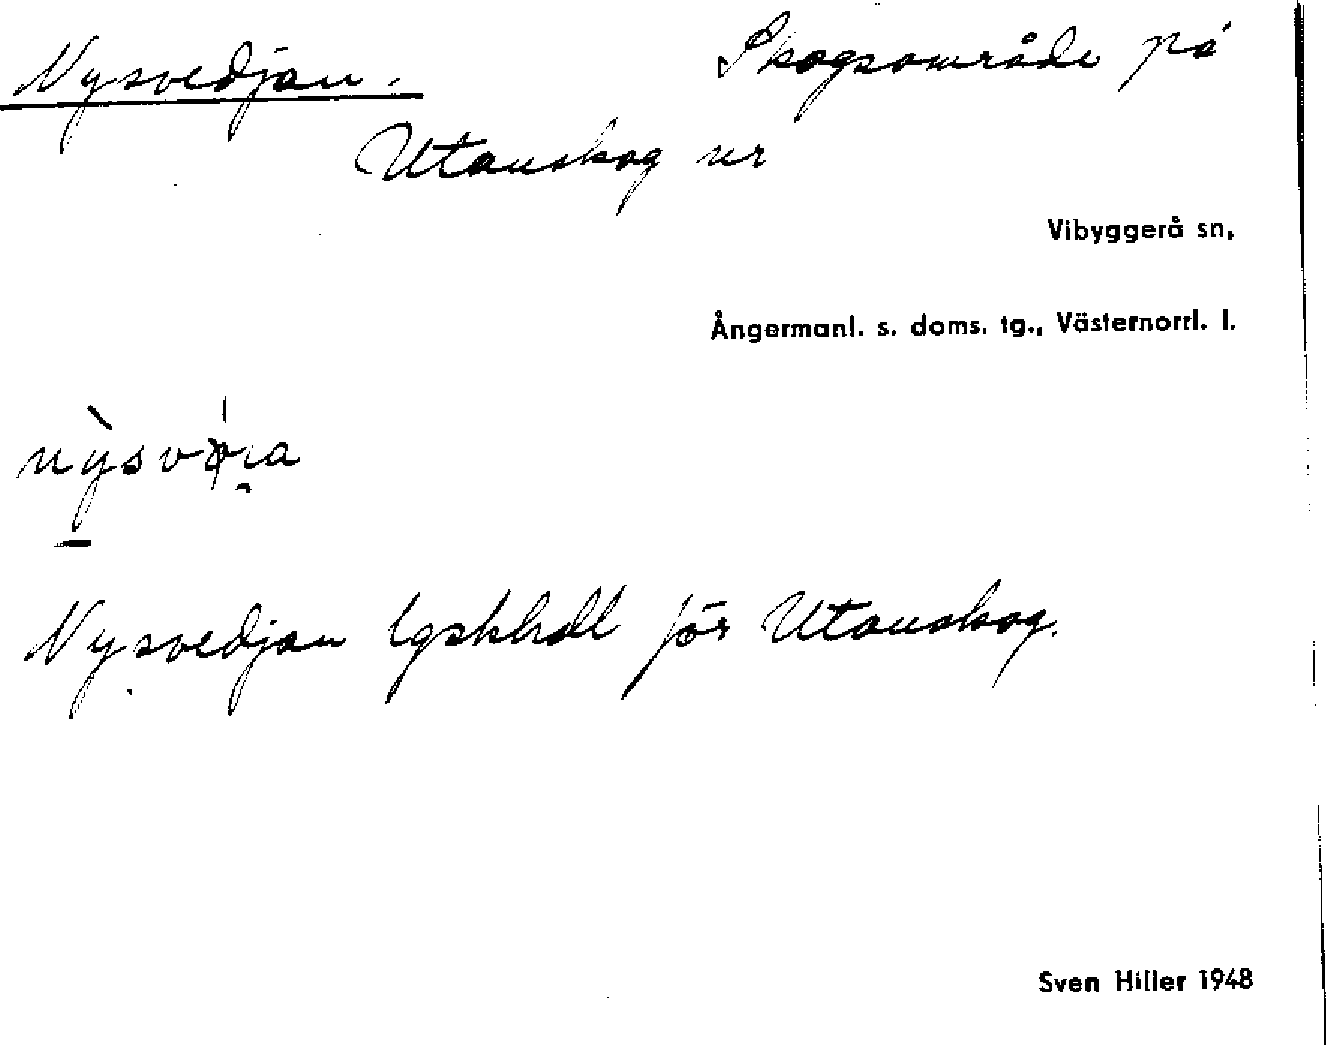 Nysvedjan. Skogsområde på
Utanskog nr
Vibyggerå sn,
Ångermanl. s. doms. tg., Västernorrl. l.
Nysvedjan lgskholl för Utanskog.
Sven Hiller 1948